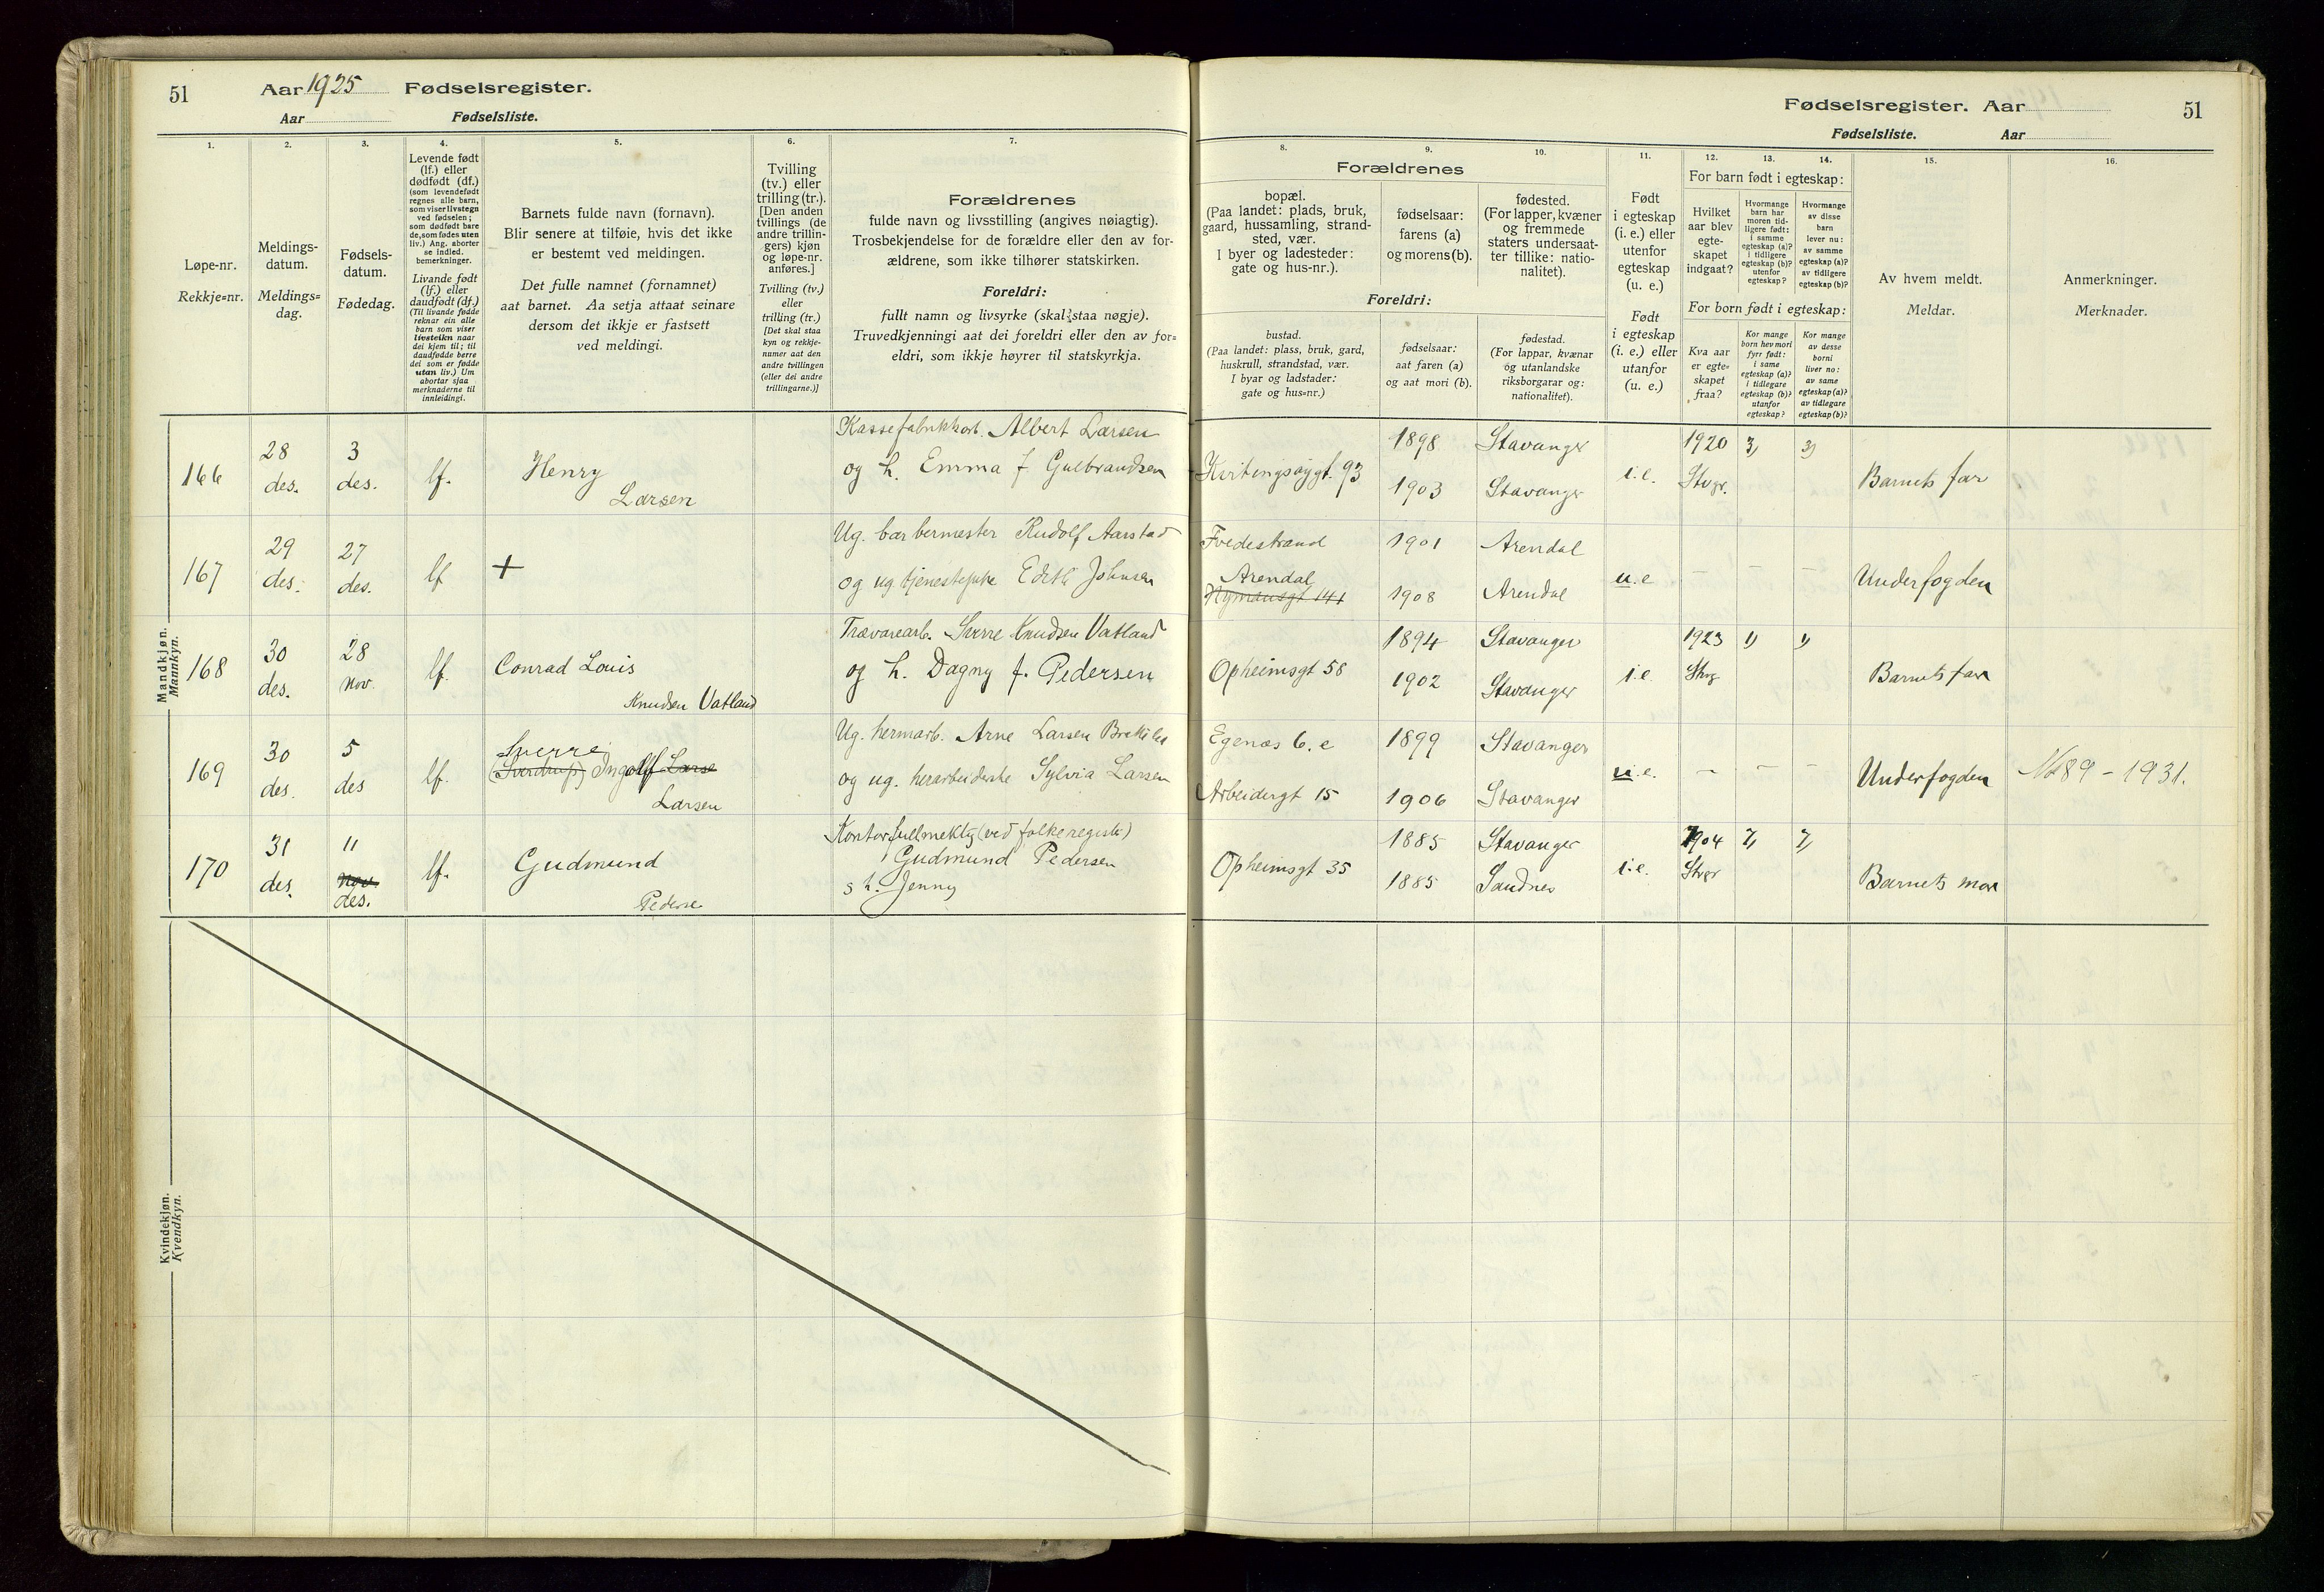 51
Aar 1925 Fødselsregister.
Aar Fødselsliste.
1.
2.
3.
4.
5.
6.
7.
Løpe-nr.
Rekkje=nr.
Meldings-
datum.
Meldings=
dag.
Fødsels-
datum.
Fødedag.
Levende født
(lf.) eller
dødfødt (df.)
(som levendefødt
regnes alle barn,
som viser livstegn
ved fødselen;
som dødfødt bare
de, som fødes uten
liv.) Ang. aborter
se indled.
bemerkninger.
Livande født
(lf.) eller
daudfødt (df.)
(Til livande fødde
reknar ein alle
barn som viser
livsteikn naar
dei kjem til; til
daudfødde berre
dei som er fødde
utan liv.) Um
abortar sjaa
merknaderne til
innleidingi.
Barnets fulde navn (fornavn).
Blir senere at tilføie, hvis det ikke
er bestemt ved meldingen.
Det fulle namnet (fornamnet)
aat barnet. Aa setja attaat seinare
dersom det ikkje er fastsett
ved meldingi.
Tvilling
(tv.) eller
trilling (tr.).
[Den anden
tvillings (de
andre trillin-
gers) kjøn
og løpe-nr.
anføres.]
Tvilling (tv.)
eller
trilling (tr.)
[Det skal staa
kyn og rekkje-
numer aat den
andre tvillingen
(eller dei andre
trillingarne.)]
Forældrenes
fulde navn og livsstilling (angives nøiagtig).
Trosbekjendelse for de forældre eller den av for-
ældrene, som ikke tilhører statskirken.
Foreldri:
fullt namn og livsyrke (skal staa nøgje).
Truvedkjenningi aat dei foreldri eller den av for=
eldri, som ikkje høyrer til statskyrkja.
Mandkjøn.
Mannkyn.
166
28
des.
3
des.
lf.
Henry
Larsen
Kassefabrikkarb. Albert Larsen
og h. Emma f Gulbrandsen
167
29
des.
27
des.
lf
+
Ug. barbermester Rudolf Aarstad
og ug. tjenestepike Edith Johnsen
168
30
des.
28
nov.
lf.
Conrad Louis
Knudsen Vatland
Trævarearb. Knudsen Vatland
og h. Dagny f. Pedersen
169
30
des.
5
des
lf.
Sverre
(Sverdrup) Ingolf Larse
Larsen
Ug. hermarb. Arne Larsen
og ug. Sylvia Larsen
170
31
des.
11
nov.
des.
lf.
Gudmund
Pederse
Kontorfullmektig (ved folkeregistr)
Gudmund Pedersen
s h. Jenny
Kvindekjøn.
Kvendkyn.
Fødselsregister. Aar
51
Fødselsliste. Aar
8.
9.
10.
11.
12.
13.
14.
15.
16.
Forældrenes
bopæl.
(Paa landet: plads, bruk,
gaard, hussamling, strand-
sted, vær.
I byer og ladesteder:
gate og hus-nr.).
fødselsaar:
farens (a)
og morens (b).
fødested.
(For lapper, kvæner
og fremmede
staters undersaat-
ter tillike: natio-
nalitet).
Foreldri:
bustad.
(Paa landet: plass, bruk, gard,
huskrull, strandstad, vær.
I byar og ladstader:
gate og hus=nr.)
fødselsaar:
aat faren (a)
og aat mori (b).
fødestad.
(For lappar, kvænar
og utanlandske
riksborgarar og:
nationalitet).
Født
i egteskap
(i. e.) eller
utenfor
egteskap
(u. e.)
Født
i egteskap
(i. e.) eller
utanfor
egteskap
(u. e.)
For barn født i egteskap:
Hvilket
aar blev
egte-
skapet
indgaat?
Hvormange
barn har
moren tid-
ligere født:
i samme
egteskap (a)?
i tidligere
egteskap (b)?
utenfor
egteskap?
Hvormange
av disse
barn
lever nu:
av samme
egteskap (a)?
av tidligere
egteskap (b)?
For born født i egteskap:
Kva aar
er egte=
skapet
fraa?
Kor mange
born hev mori
fyrr født:
i same
egteskap (a)?
i tidlegare
egteskap (b)?
utanfor
egteskap?
Kor mange
av desse
borni
liver no:
av same
egteskap (a)?
av tidlegare
egteskap (b)?
Av hvem meldt.
Meldar.
Anmerkninger.
Merknader.
Kvitingsøygt. 93
1898
1903
Stavanger
Stavanger
i.e.
1920
Stvgr.
3)
3)
Barnets far
Tvedestrand
Arendal
Nymansgt 141
1901
1908
Arendal
Arendal
u.e
–
–
–
Underfogden
Opheimsgt 58
1894
1902
Stavanger
Stavanger
i.e.
1923
Stvg
1)
1)
Barnets far
Egenæs 6.e
Arbeidergt 15
1899
1906
Stavanger
Stavanger
u.e.
–
–
–
Underfogden
No 89 – 1931.
Opheimsgt 35
1885
1885
Stavanger
Sandnes
i.e.
1904
Stvgr
7)
7)
Barnets mor